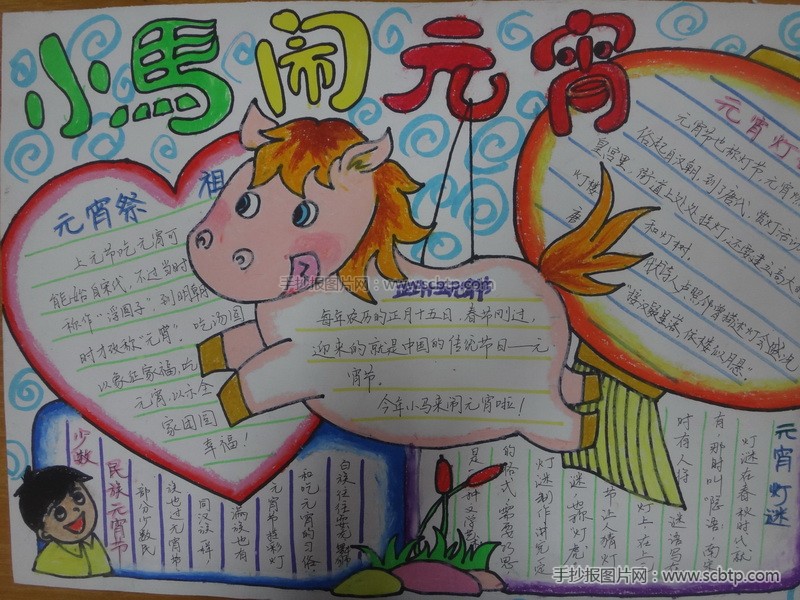 小馬闹元宵
元宵祭 祖
上元节吃元宵可
能始自宋代，不过当时
称作"浮圆子"到明朝
时才改称"元宵"。吃汤圆
以象征家福，吃
元宵，以示全
家团圆
幸福！
正月十五元宵节
每年农历的正月十五日，春节刚过，
迎来的就是中国的传统节日——元
宵节。
今年小马来闹元宵啦！
元宵灯
元宵节也称灯节，元宵燃
俗起自汉朝，到了唐代，赏灯活动
皇宫里、街道上处处挂灯，还要建立高大的
灯楼 和灯树。
唐
代诗人卢照邻曾描述灯会盛况
"接汉疑星落，依楼似月悬。"
少数
民族元宵节
部分少数民
族也过元宵节
同汉族一样，
满族也有
元宵节挂彩灯
和吃元宵的习俗
白族往往
元宵灯谜
灯谜在春秋时代就
有，那时叫"隐语"，南宋
时有人将 谜语写在
灯上，在上元
节让人猜灯
谜，也称灯虎。
灯谜制作讲究
的格式，需要巧思，
是
手抄报图片网：www.scbtp.com
手抄报图片网：www.scbtp.com